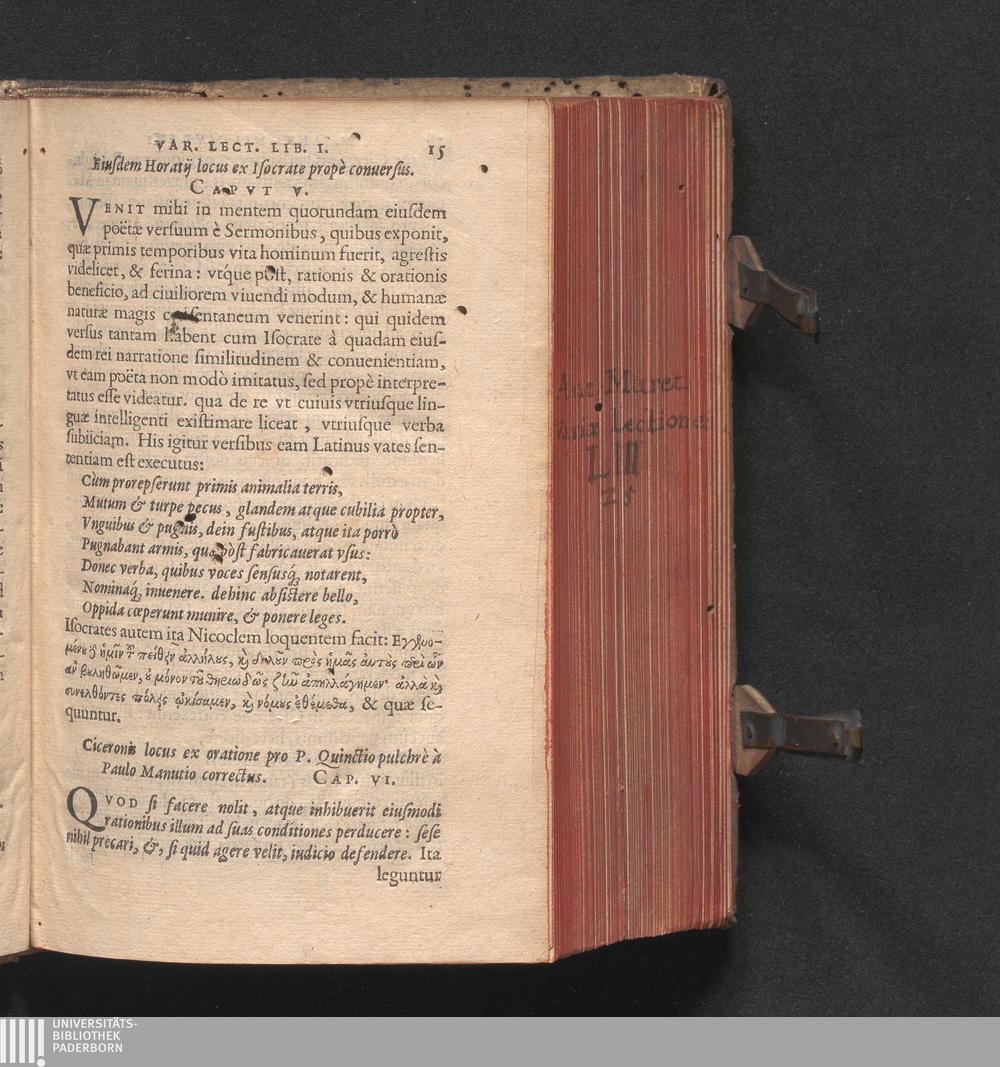 VAR. LECT. LIB. I. 15
Eiuſdem Horatij locus ex Iſocrate propè conuerſus.
CAPVT V.
VENIT mihi in mentem quorundam eiuſdem
poëtæ verſuum è Sermonibus, quibus exponit,
quæ primis temporibus vita hominum fuerit, agreſtis
videlicet, & ferina: vtq́ue pòſt, rationis & orationis
beneficio, ad ciuiliorem viuendi modum, & humanæ
naturæ magis conſentaneum venerint: qui quidem
verſus tantam habent cum Iſocrate à quadam eiuſ-
dem rei narratione ſimilitudinem & conuenientiam,
vt eam poëta non modò imitatus, ſed propè interpre-
tatus eſſe videatur. qua de re vt cuiuis vtriuſque lin-
guæ intelligenti exiſtimare liceat, vtriuſque verba
ſubiiciam. His igitur verſibus eam Latinus vates ſen-
tentiam eſt executus:
Cùm prorepſerunt primis animalia terris,
Mutum & turpe pecus, glandem atque cubilia propter,
Vnguibus & pugnis, dein fuſtibus, atque ita porrò
Pugnabant armis, quæ pòſt fabricauerat vſus:
Donec verba, quibus voces ſenſusq́; notarent,
Nominaq́; inuenere. dehinc abſiſtere bello,
Oppida cœperunt munire, & ponere leges.
Iſocrates autem ita Nicoclem loquentem facit: Ἐγγενο-
μένου δ' ἡμῖν τοῦ πείθειν ἀλλήλους, καὶ δηλοῦν πρὸς ἡμᾶς αὐτοὺς περὶ ὧν
ἂν βουληθῶμεν, οὐ μόνον τοῦ θηριωδῶς ζῆν ἀπηλλάγημεν· ἀλλὰ καὶ
συνελθόντες πόλεις ᾠκίσαμεν, καὶ νόμους ἐθέμεθα, & quæ ſe-
quuntur.
Ciceronis locus ex oratione pro P. Quinctio pulchrè à
Paulo Manutio correctus. CAP. VI.
QVOD ſi facere nolit, atque inhibuerit eiuſmodi
rationibus illum ad ſuas conditiones perducere: ſeſe
nihil precari, &, ſi quid agere velit, iudicio defendere. Ita
leguntur
Ant. Muret.
Variæ Lectiones
LIII
25
UNIVERSITÄTS-
BIBLIOTHEK
PADERBORN